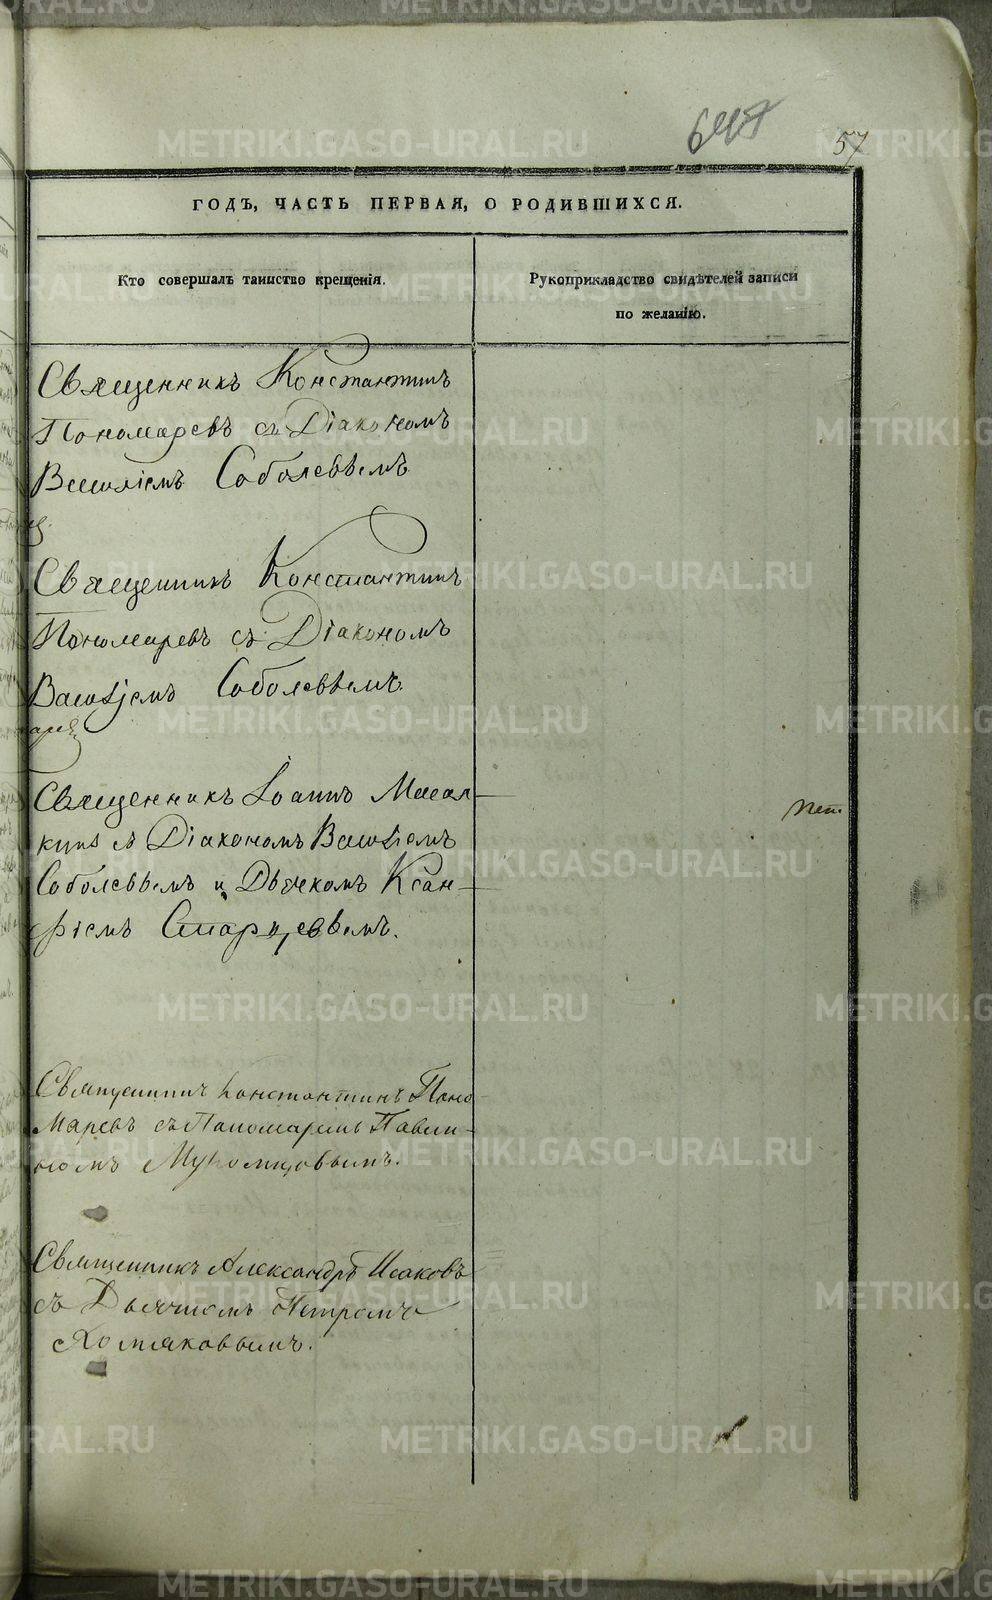 647
57
ГОДЪ, ЧАСТЬ ПЕРВАЯ, О РОДИВШИХСЯ.
Кто совершалъ таинство крещенія.
Рукоприкладство свидѣтелей записи
по желанію.
Священникъ Константинъ
Пономаревъ съ Діакономъ
Василіемъ Соболевымъ
Священникъ Константинъ
Пономаревъ съ Діакономъ
Василіемъ Соболевымъ
Священникъ Іоаннъ Масал-
кинъ съ Діакономъ Василіемъ
Соболевымъ и Дьячкомъ Ксан-
фіемъ Старцевымъ.
Священникъ Константинъ Поно
маревъ съ Пономаремъ Павли-
номъ Мутомцовымъ.
Священникъ Александръ Исаковъ
съ Дьячкомъ Петромъ
Хомяковымъ.
METRIKI.GASO-URAL.RU